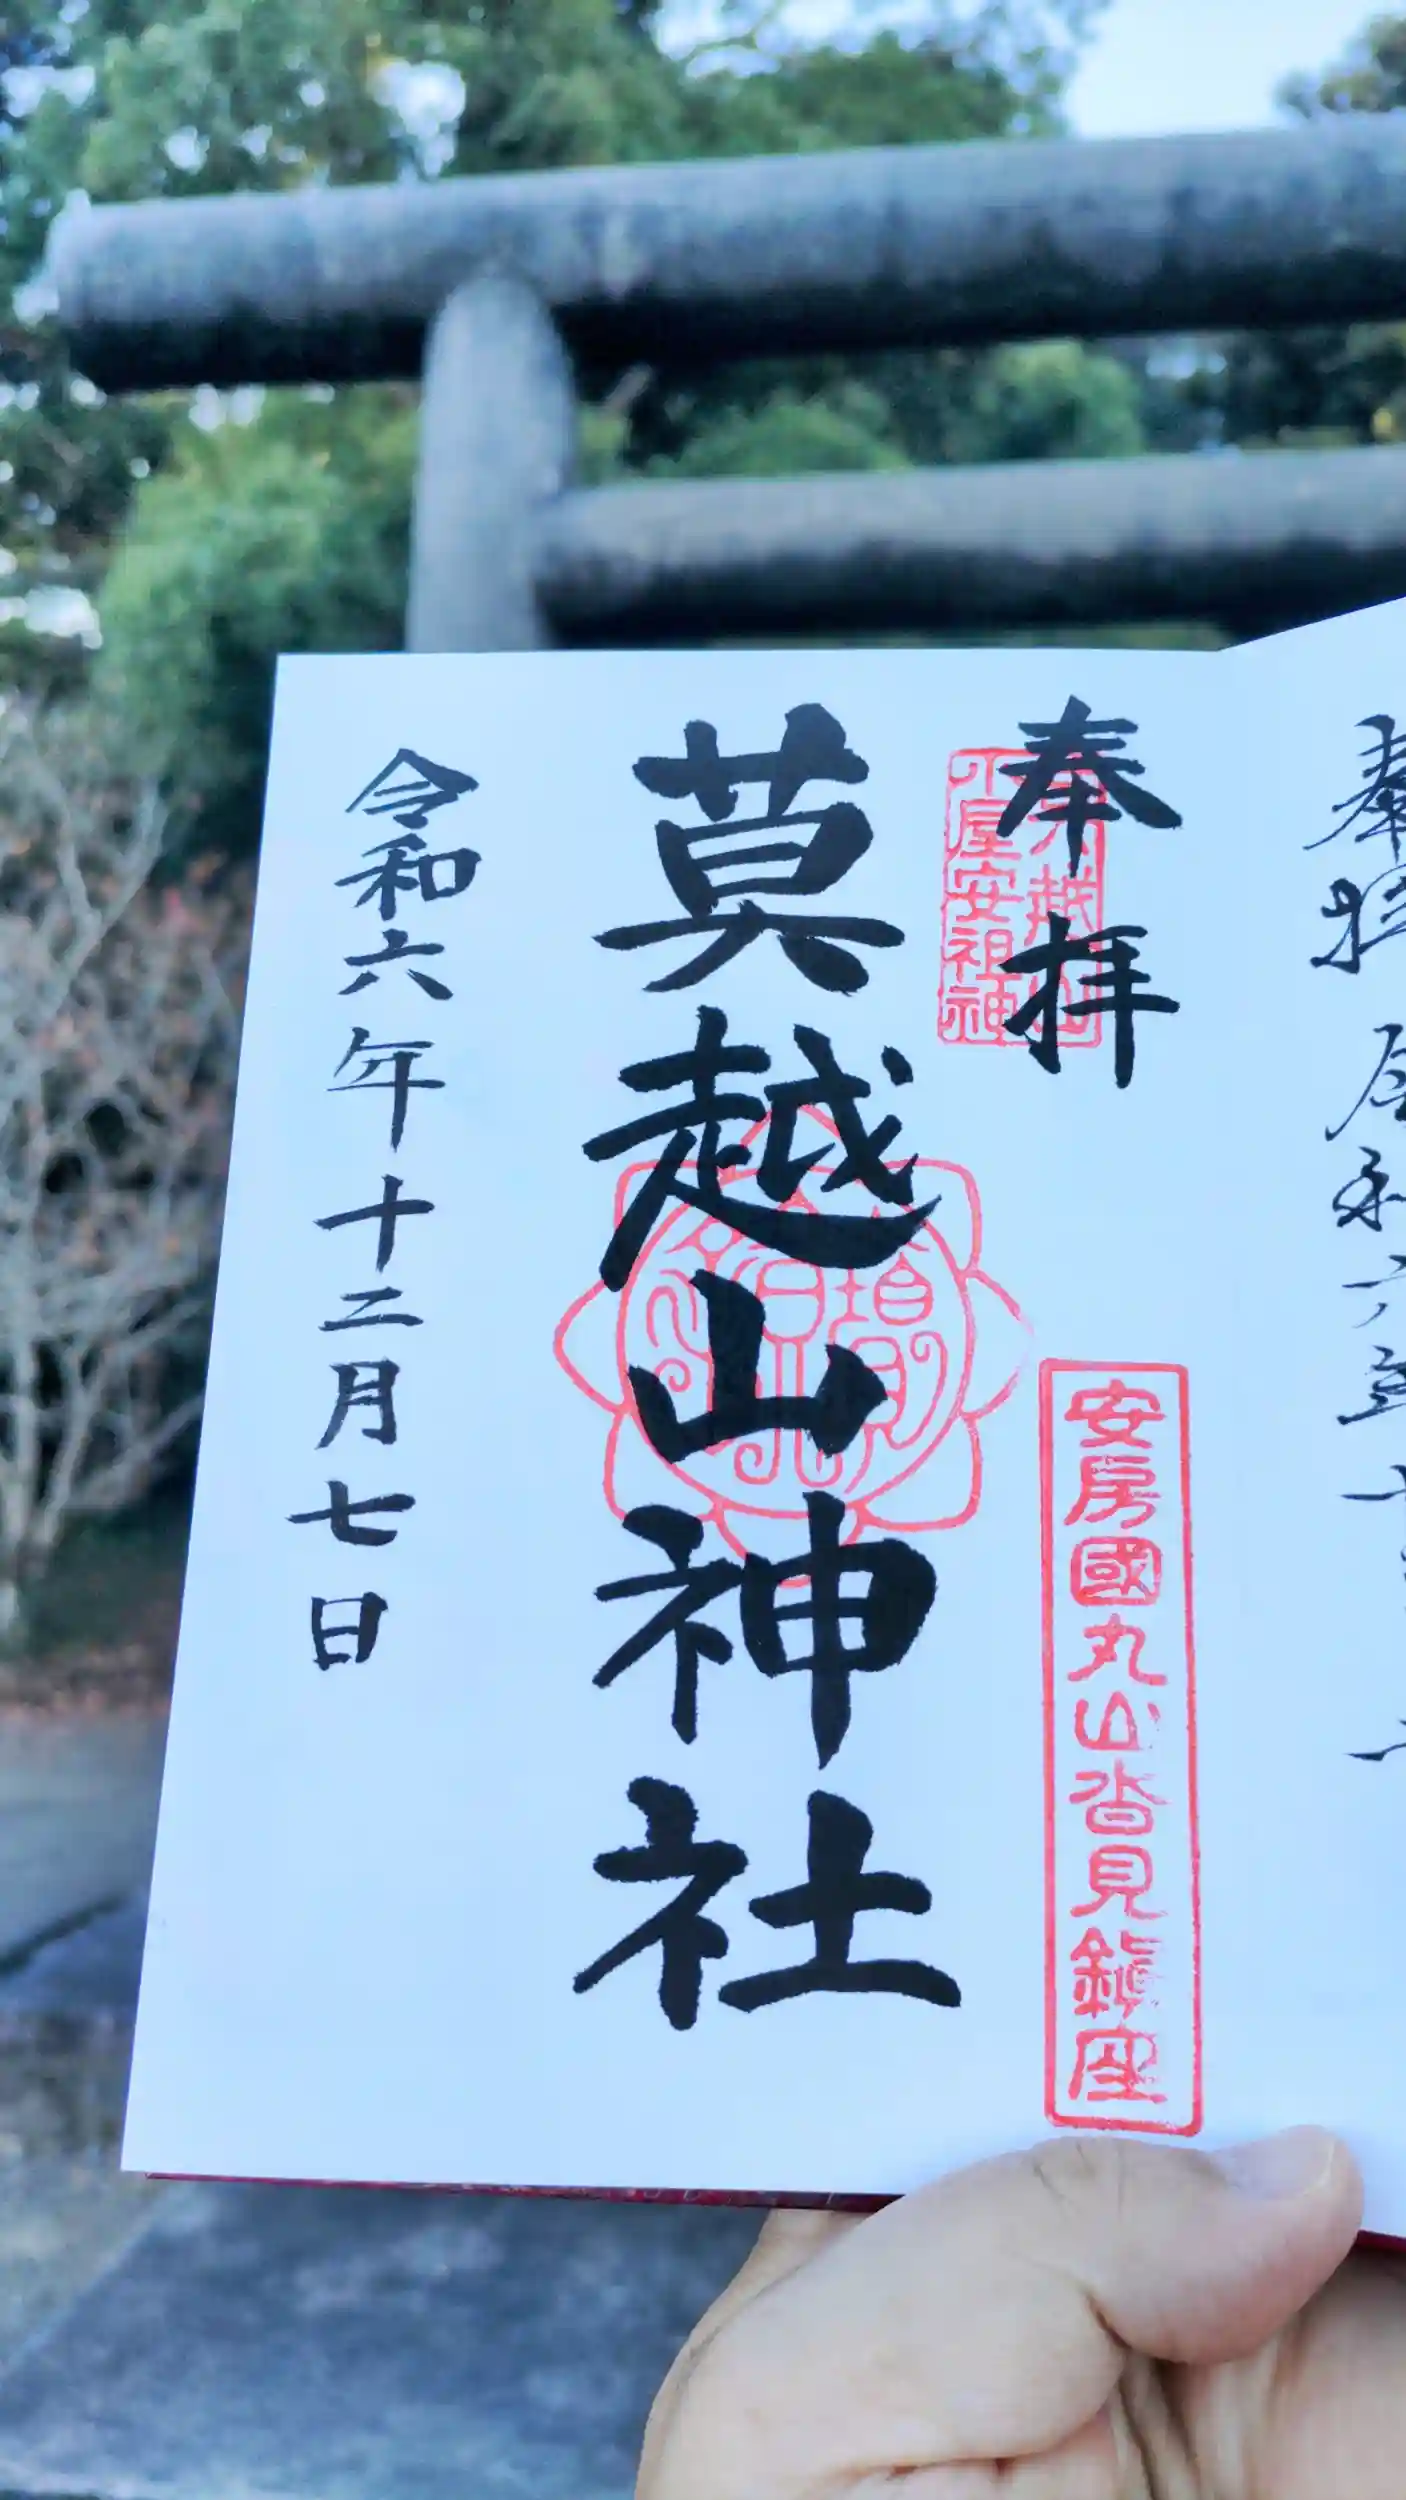 奉拝
莫越山
小屋安祖神
安房國丸山沓見鎮座
莫越山神社
令和六年十二月七日